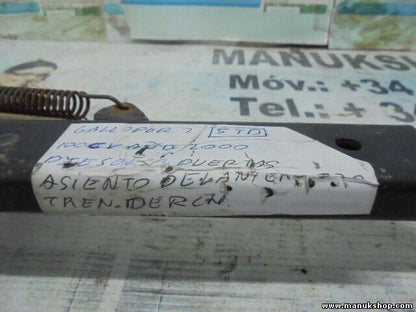 MANUKSH
Móv.: +34
Tel.: +34
GALLOPER ? STD
100CV AÑO 2000
DIESEL 3 PUERTAS
ASIENTO DELANTERO
TREN. DERCH
www.manukshop.com